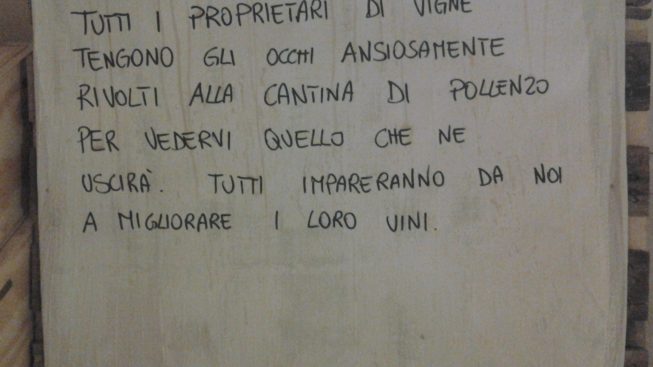 TUTTI I PROPRIETARI DI VIGNE
TENGONO GLI OCCHI ANSIOSAMENTE
RIVOLTI ALLA CANTINA DI POLLENZO
PER VEDERVI QUELLO CHE NE
USCIRÀ. TUTTI IMPARERANNO DA NOI
A MIGLIORARE I LORO VINI.